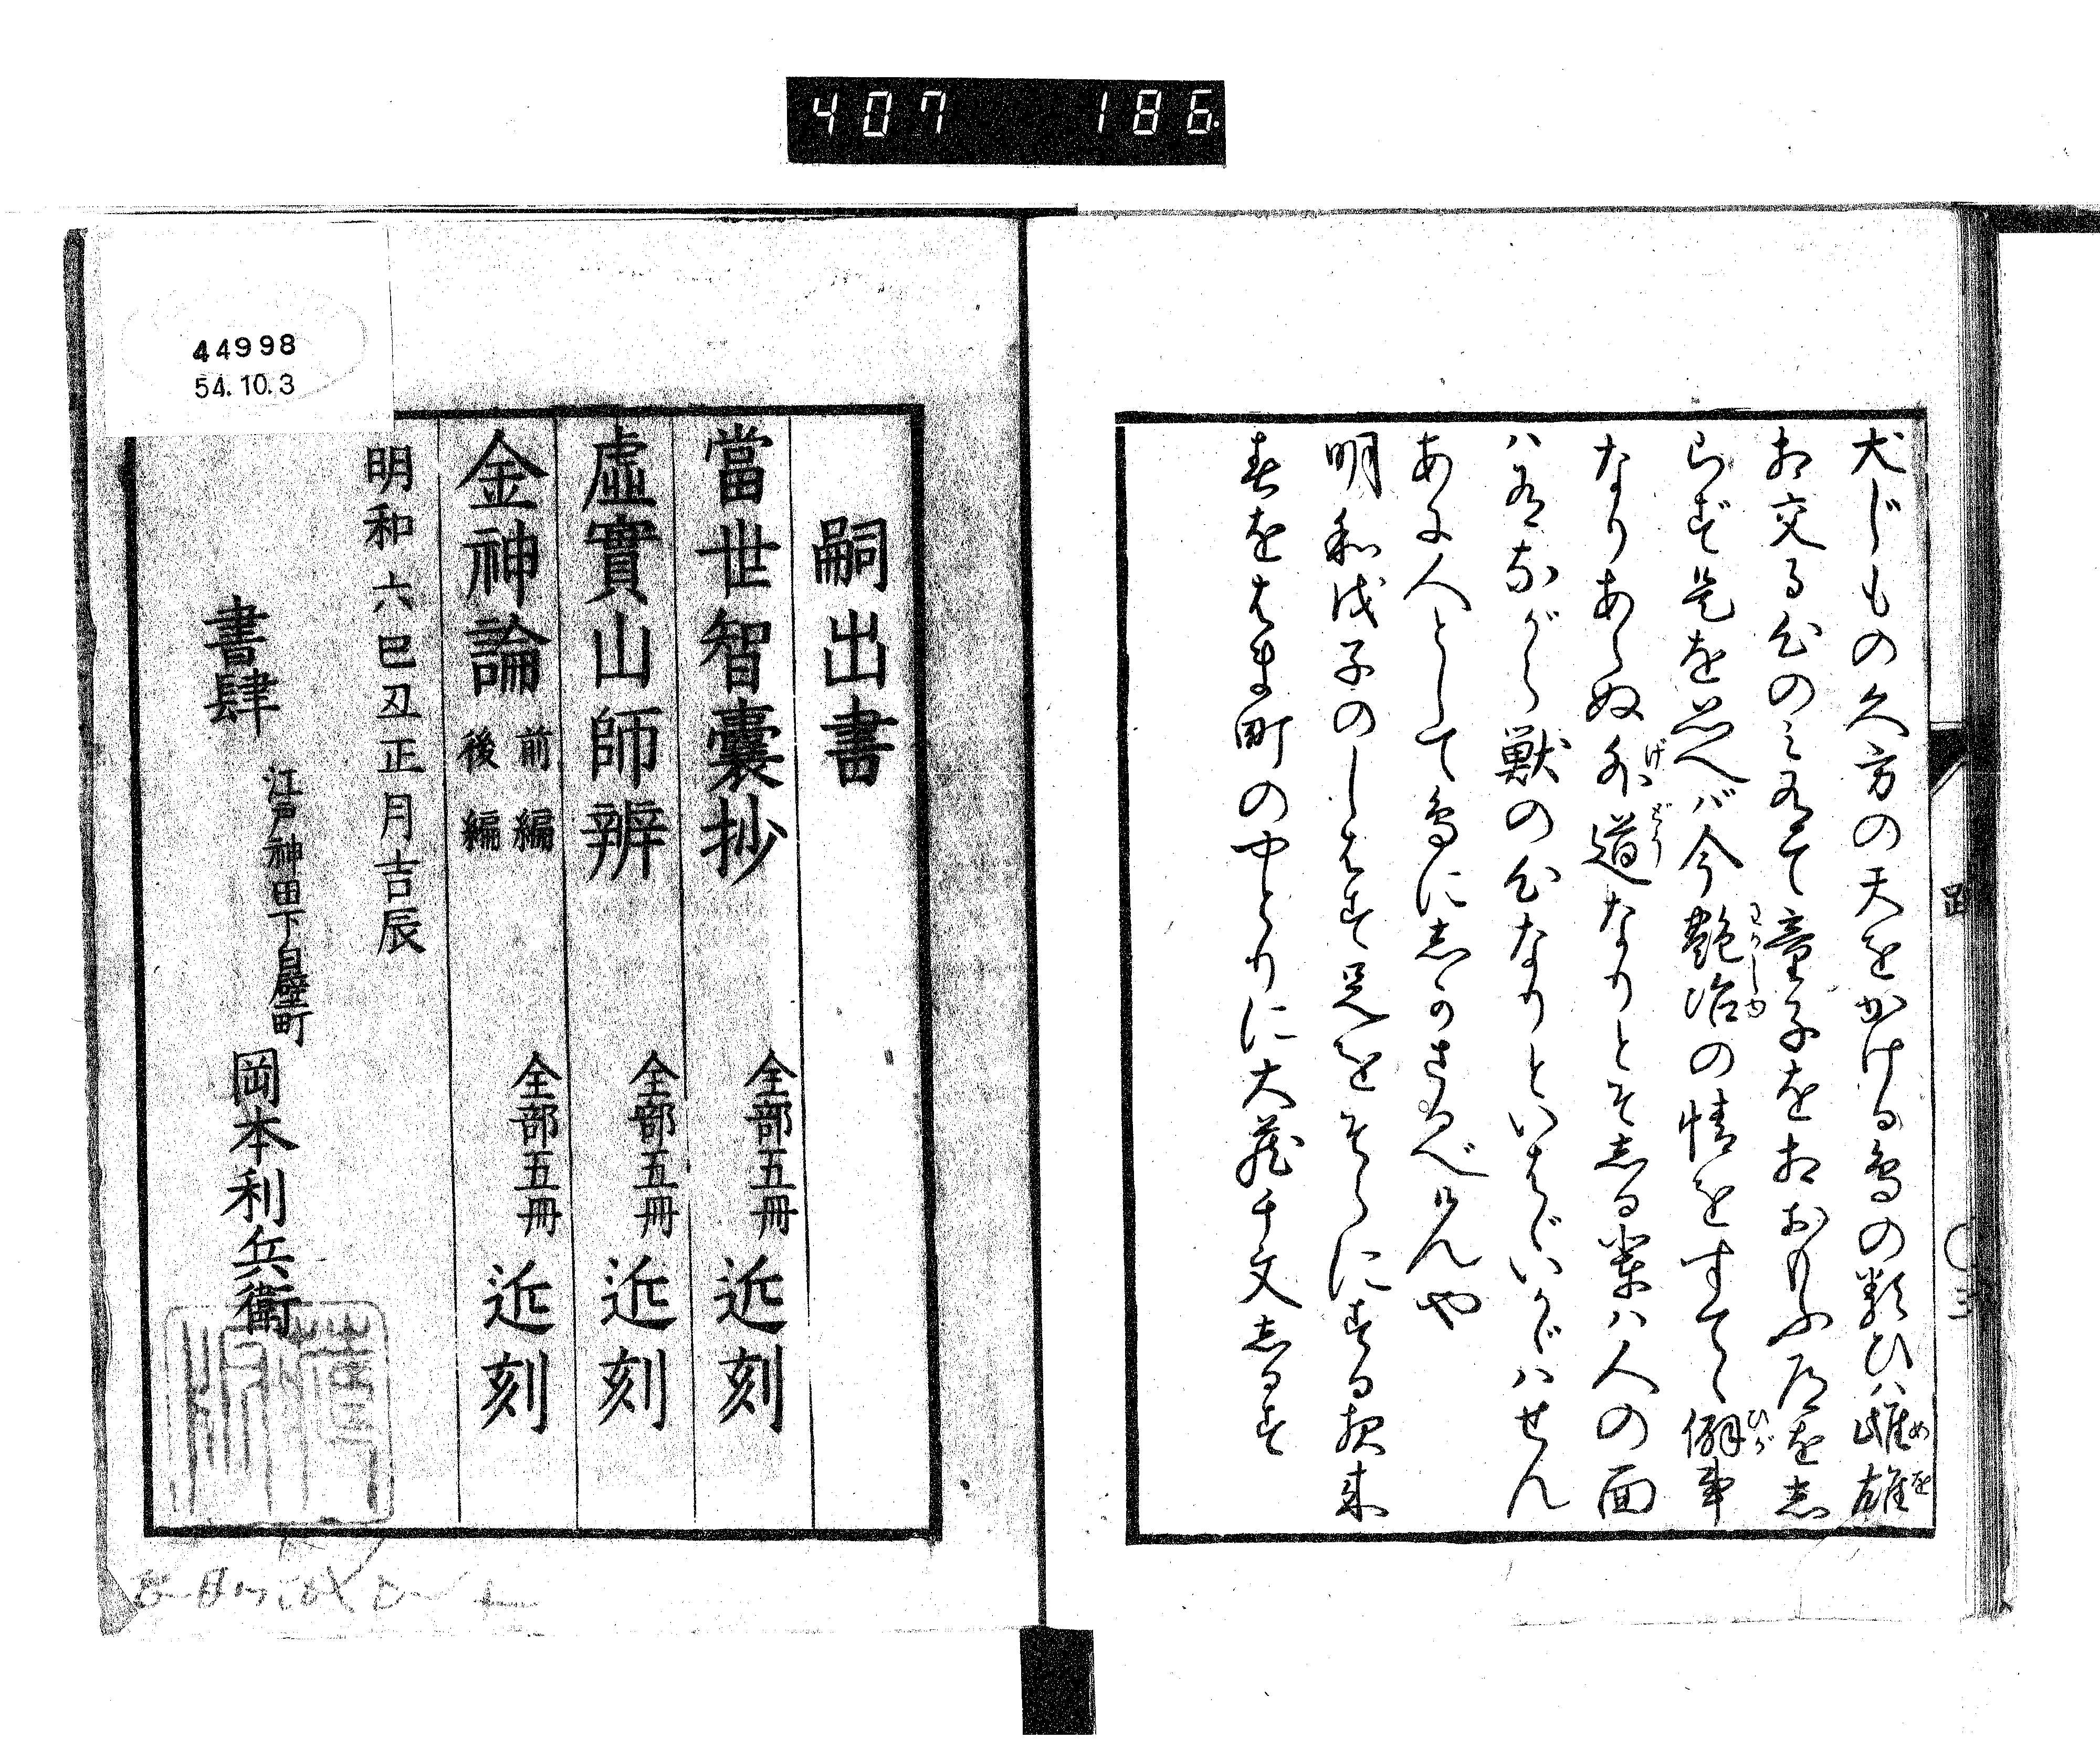 407 186
犬じもの久方の天をかける鳥の類ひハ雌雄
相交る心のミ有て童子を相おもふ道を志
らず是を思へバ今艶冶の情をすてゝ僻事
なりあらぬ外道なりとそしる輩ハ人の面
ハ有ながら獣の心なりといはゞいかゞハせん
あに人として鳥に志かざるべけんや
明和戊子のしはす晃をそらにする指来
春をはま町のやとりに大蔵千文志るす
跋
三
嗣出書
當世智囊抄 全部五冊 近刻
虛實山師辨 全部五冊 近刻
金神論 前編 後編 全部五冊 近刻
明和六巳丑正月吉辰
書肆 江戸神田下白壁町 岡本利兵衛
44998
54.10.3